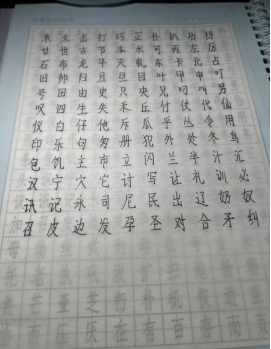 未 末 击 打 巧 正 扑 扒 功 扔
甘 世 古 节 本 术 可 丙 左 厉
石 布 龙 平 灭 轧 东 卡 北 占
旧 帅 归 且 旦 目 叶 甲 申 叮
号 田 由 史 只 央 兄 叼 叫 另
叹 四 生 失 禾 丘 付 仗 代 仙
仪 白 仔 他 斥 瓜 乎 丛 令 用
印 乐 句 匆 册 犯 外 处 冬 鸟
包 饥 主 市 立 闪 兰 半 汁 汇
汉 宁 穴 它 讨 写 让 礼 训 必
讯 记 永 司 尼 民 出 辽 奶 奴
召 皮 边 发 孕 圣 对 台 矛 纠
加
母
芝 朽 朴
厌 在 有 百 存 而 页